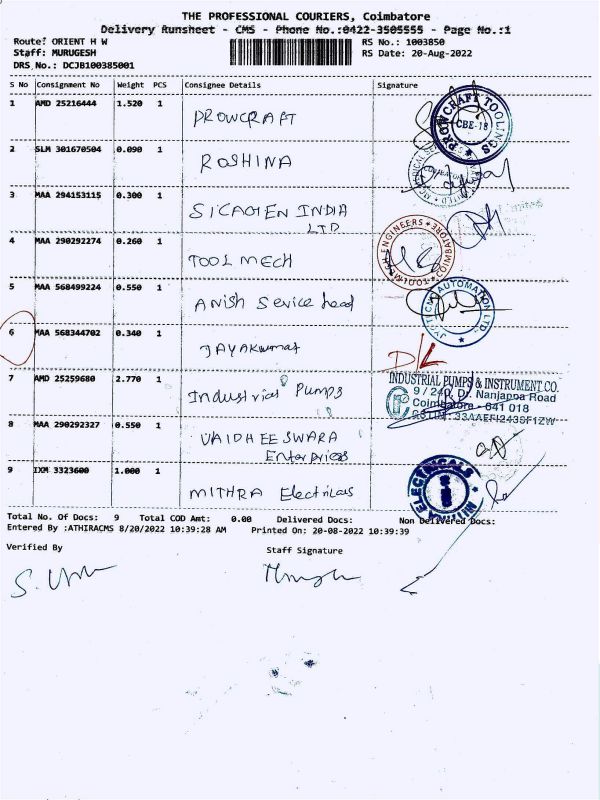 THE PROFESSIONAL COURIERS, Coimbatore
Delivery Runsheet - CMS - Phone No.:0422-3505555 - Page No.:1
Route: ORIENT H W RS No.: 1003850
Staff: MURUGESH RS Date: 20-Aug-2022
DRS No.: DCJB100385001
S No Consignment No Weight PCS Consignee Details Signature
1 AMD 25216444 1.520 1 PROWCRAFT
PROWCRAFT TOOLINGS CBE-18
2 SLM 301670504 0.090 1 ROSHINA
3 MAA 294153115 0.300 1 SICAGEN INDIA
LTD
4 MAA 290292274 0.260 1 TOOL MECH
TOOLMECH ENGINEERS COIMBATORE
5 MAA 568499224 0.550 1 Anish Service head
AUTOMATION
6 MAA 568344702 0.340 1 JAYAKumar
7 AMD 25259680 2.770 1 Industrial Pumps
INDUSTRIAL PUMPS & INSTRUMENT CO.
9 / 240, Dr. Nanjappa Road
Coimbatore - 641 018
8 MAA 290292327 0.550 1 VAIDHEESWARA
Enterprises
9 IXM 3323600 1.000 1 MITHRA Electricas
MITHRA ELECTRICALS
Total No. Of Docs: 9 Total COD Amt: 0.00 Delivered Docs: Non Delivered Docs:
Entered By :ATHIRACMS 8/20/2022 10:39:28 AM Printed On: 20-08-2022 10:39:39
Verified By Staff Signature